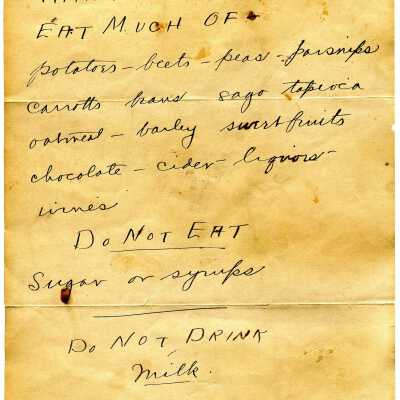 EAT MUCH OF
potatoes - beets - peas - parsnips
carrotts beans sago tapioca
oatmeal - barley sweet fruits
chocolate - cider - liquors -
wines
DO NOT EAT
Sugar or syrups
DO NOT DRINK
Milk.